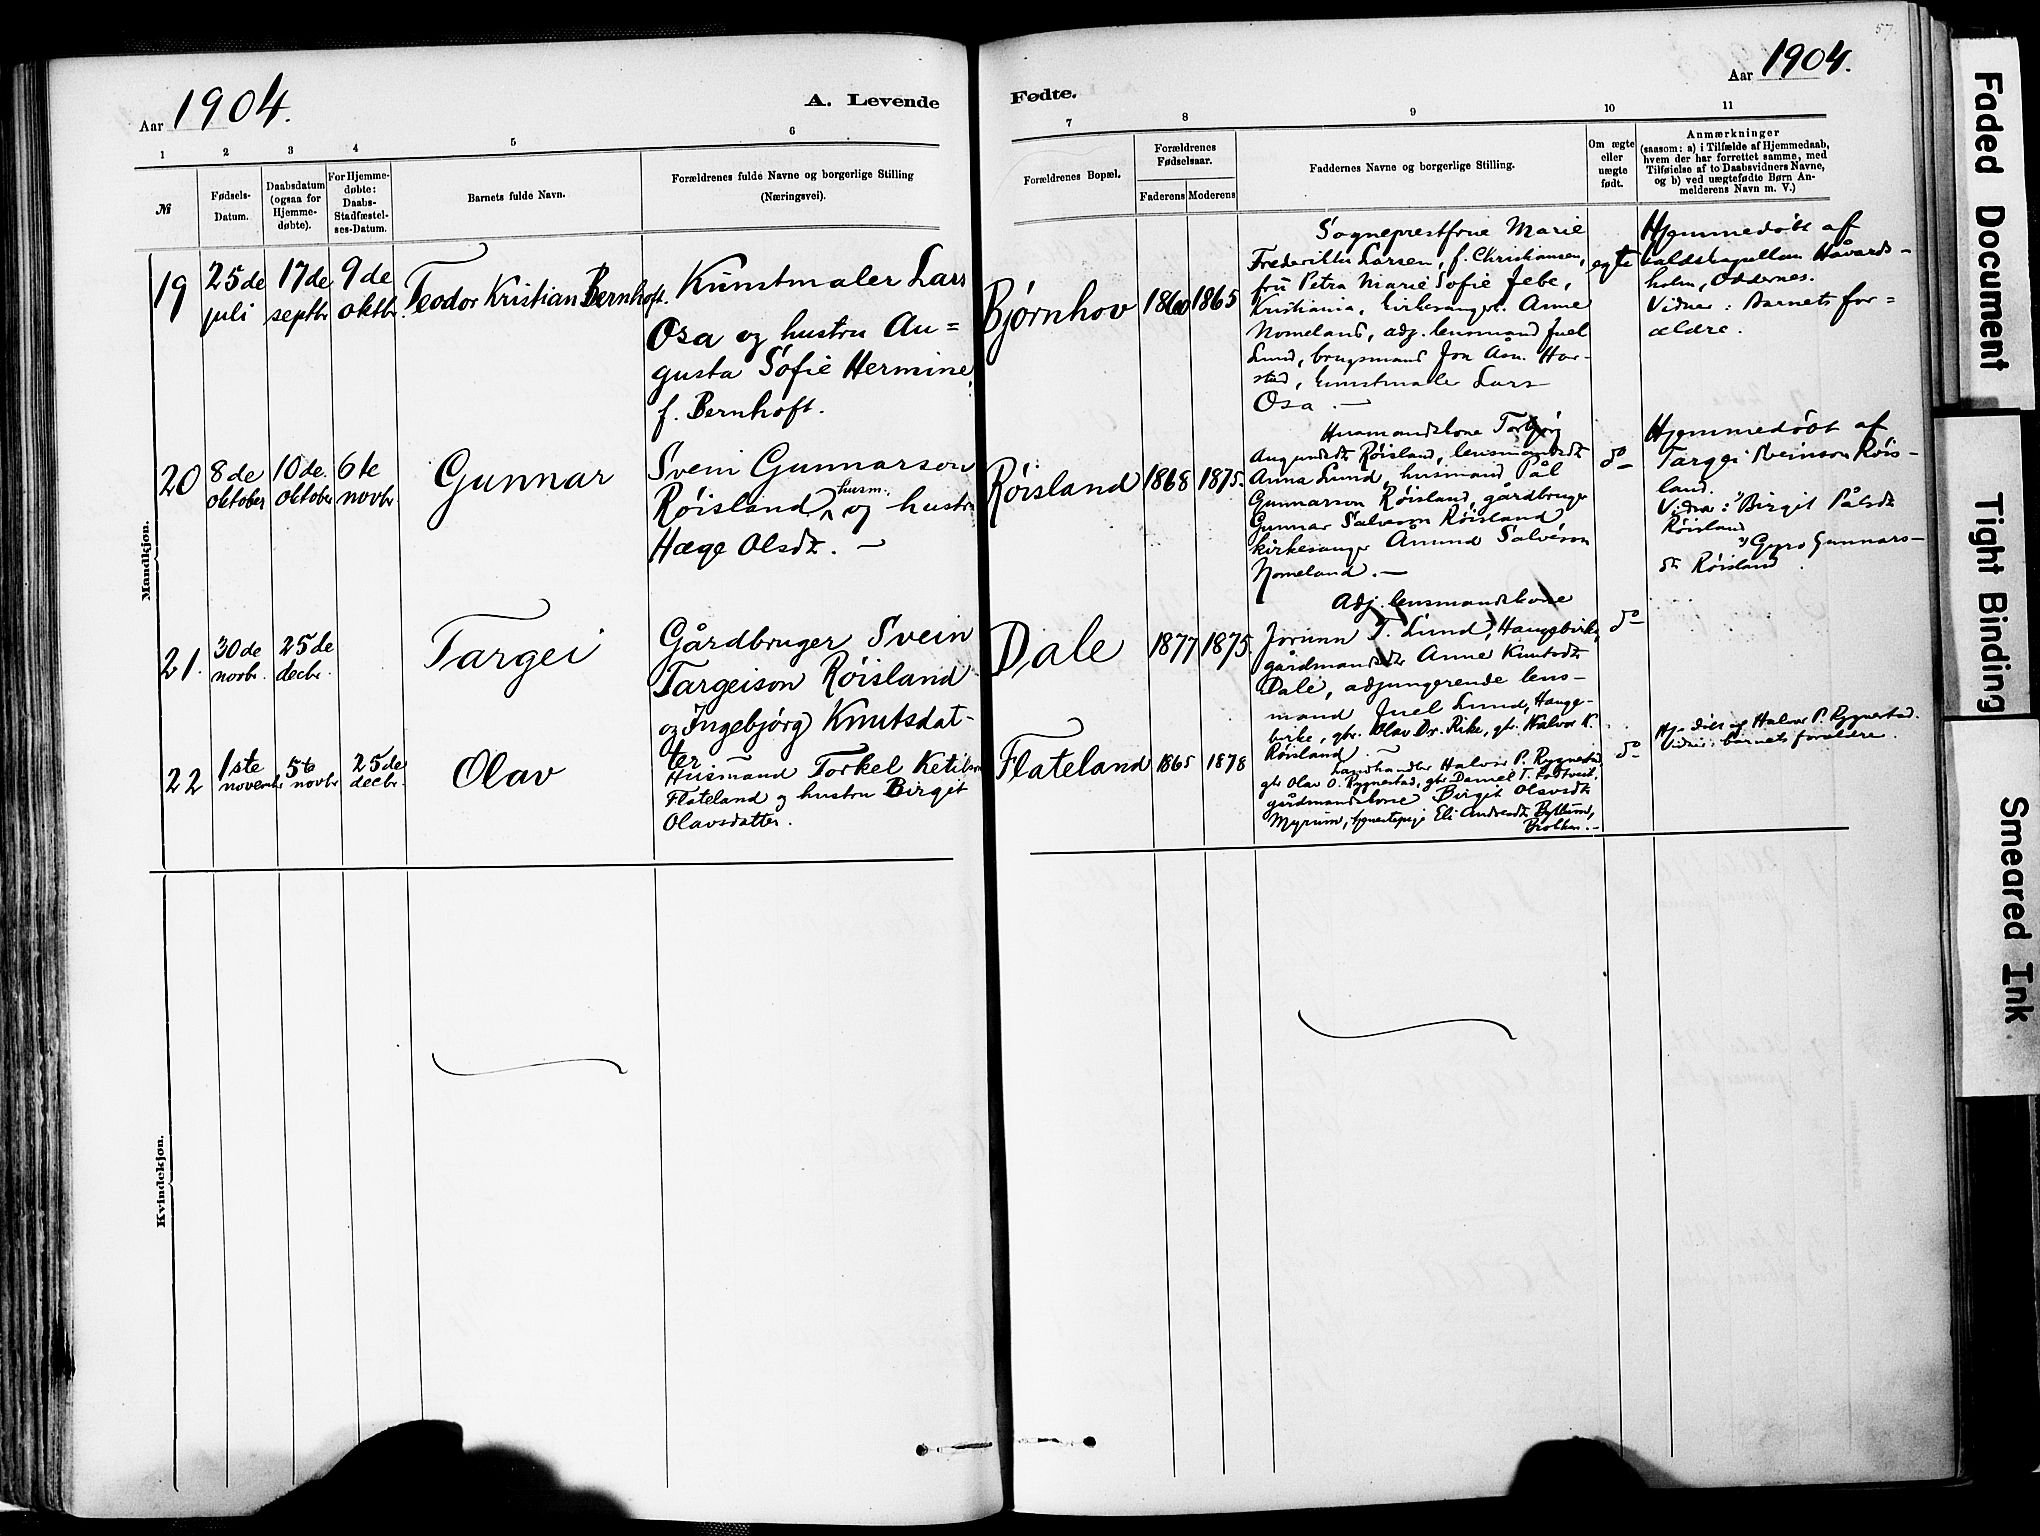 57.
Aar 1904.
A. Levende
Fødte.
Aar 1904.
1 2 3 4 5 6
7 8 9 10 11
№
Fødsels-
Datum.
Daabsdatum
(ogsaa for
Hjemme-
døbte).
For Hjemme-
døbte:
Daabs-
Stadfæstel-
ses-Datum.
Barnets fulde Navn.
Forældrenes fulde Navne og borgerlige Stilling
(Næringsvei).
Forældrenes Bopæl.
Forældrenes
Fødselsaar.
Faderens
Moderens
Faddernes Navne og borgerlige Stilling.
Om ægte
eller
uægte
født.
Anmærkninger
(saasom: a) i Tilfælde af Hjemmedaab,
hvem der har forrettet samme, med
Tilføielse af to Daabsvidners Navne,
og b) ved uægtefødte Børn An-
melderens Navn m. V.)
Mandkjøn.
19
25de
juli
17de
septbr
9de
oktbr.
Teodor Kristian Bernhoft.
Kunstmaler Lars
Osa og hustru Au=
gusta Sofie Hermine,
f. Bernhoft.
Bjørnhov
1860
1865
Sogneprestfrue Marie
Frederikke Larsen, f. Christiansen,
fru Petra Marie Sofie Jebe,
Kristiania, kirkesangers. Anne
Nomeland, adj. lensmand Juel
Lund, brugsmand Jon Asm. Har-
stad, kunstmaler Lars
Osa. —
egte
Hjemmedøbt af
kaldskapellan Håvards-
holm, Oddernes.
Vidner: Barnets for=
ældre.
20
8de
oktober
10de.
oktober
6te
novbr
Gunnar
Svein Gunnarson
Røisland husm. og hustru
Hæge Olsdt. —
Røisland
1868
1875.
Husmandskone Torbjørg
Augundsdt Røisland, lensmandsdt
Anna Lund, husmand Pål
Gunnarson Røisland, gårdbruger
Gunnar Salveson Røisland
kirkesanger Amund Salveson
Nomeland. —
do
Hjemmedøbt af
Targei Sveinson Røis-
land.
Vidner: 1) Birgit Pålsdt
Røisland
2) Gyro Gunnars-
dt Røisland.
21.
30de
novbr.
25de
decbr.
Targei
Gårdbruger Svein
Targeison Røisland
og Ingebjørg Knutsdat-
ter
Dale
1877
1875.
Adj. lensmandskone
Jorunn T. Lund, Haugebirke,
gårdmandsdtr Anne Knutsdt
Dale, adjungerende lens-
mand Juel Lund, Hauge-
birke, gbr. Olav Dr. Rike, gbr. Halvor K.
Røisland. —
do
22
1ste
november
5te
novbr
25de
decbr.
Olav
Husmand Torkel Ketilson
Flateland og hustru Birgit
Olavsdatter.
Flateland
1865
1878
Landhandler Halvor P. Rygnestad,
gbr Olav O. Rygnestad, gbr Daniel T.
gårdmandskone Birgit Olavsdt
Myrum, tjenestepige Eli Andreasdt
do
Hj. døbt af Halvor P. Rygnestad.
Vidner: barnets forældre.
Kvindekjøn.
Faded Document
Tight Binding
Smeared Ink